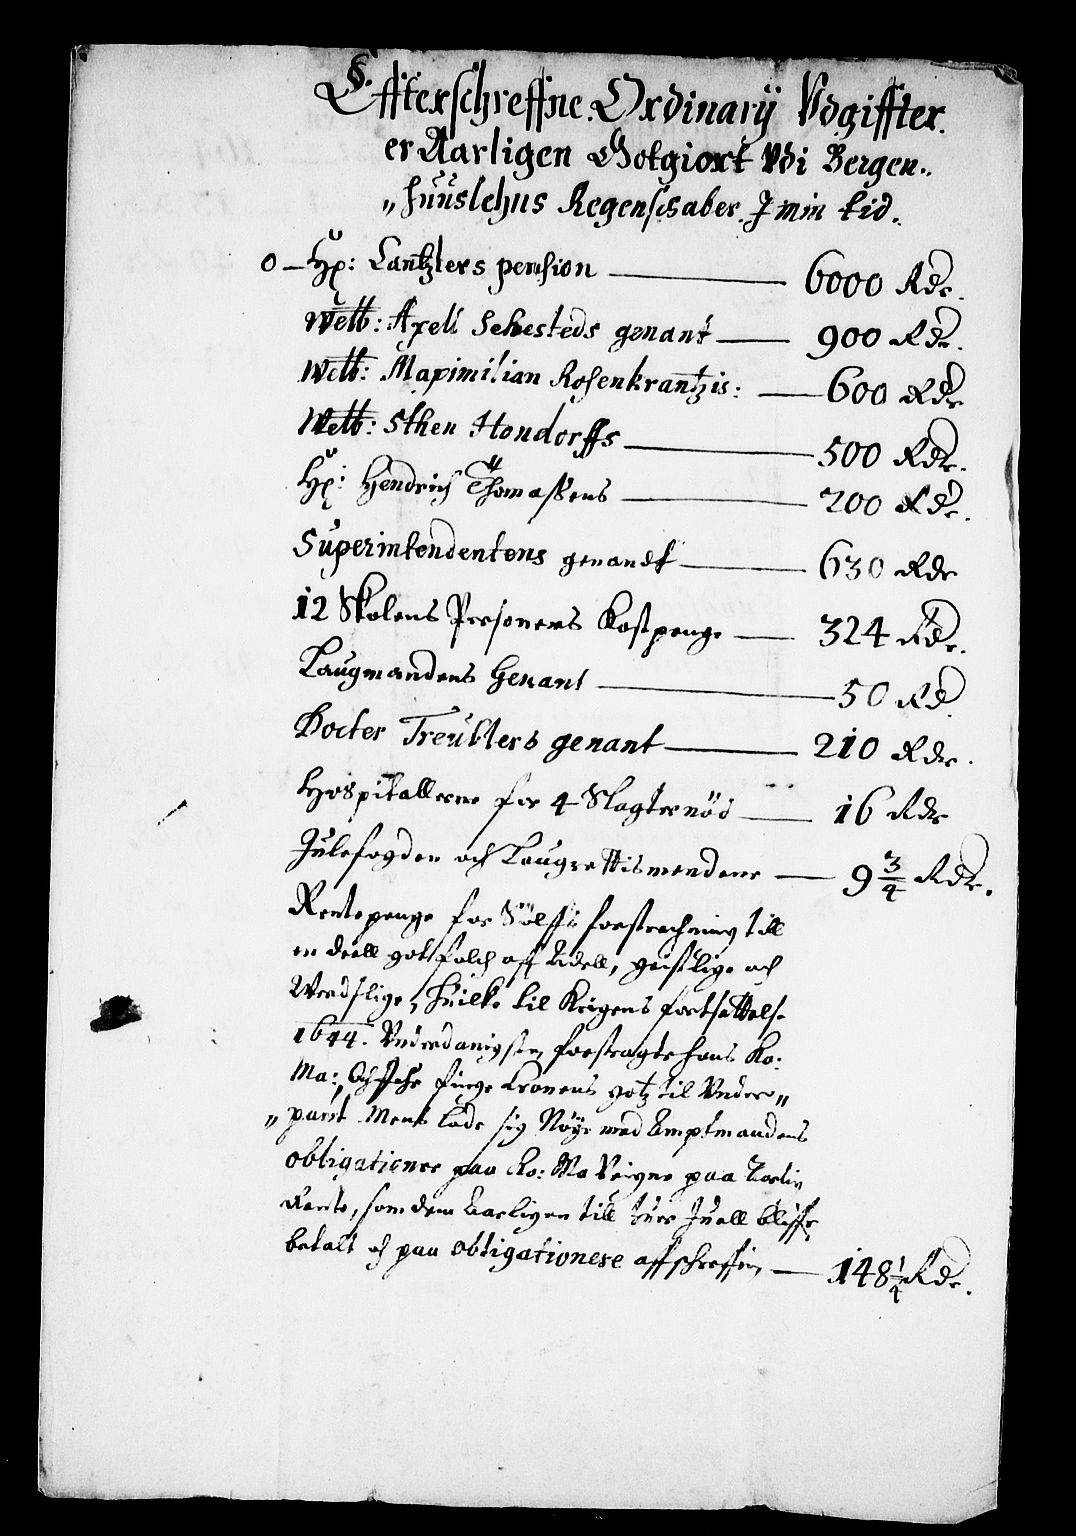 §.
Effterschreffne. Ordinarÿ Vdgiffter.
er Aarligen Gotgiort Vdi Bergen..
"huuslehns Regenskaber. J min tid.
0 – Hr: Cantzlers pension — 6000 Rdr.
Welb: Axell Sehesteds genant — 900 Rdr.
Welb: Maximilian Rosenkrantzis: — 600 Rdr
Welb: Sthen Hondorffs — 500 Rdr.
Hr: Hendrich Thomassens — 200 Rdr.
Superintendentens genandt — 630 Rdr
12 Skolens Personers Kostpenge — 324 Rdr.
Laugmandens Genant — 50 Rd.
Docter Treublers genant — 210 Rdr.
Hospitallerne for 4 Slagternöd — 16 Rdr
Julefogden och Laugrettismendene — 9 3/4 Rdr.
Rentepenge for Sölffs forstrechning till
en deell got folch aff Adell, geistlige och
Werdslige, huilke til Krigens fortsettelse
1644. Vnderdanigsten forstragte hans Ko:
Ma:, Och iche finge Cronens gotz til Vnder"
"pant Mens lode sig Nöye med Amptmandens
obligationer paa Ko: Ma Veigne paa
Rente, som dem Aarligen till huer Juell bleffe
betalt och paa obligationerne affschreffven — 148 1/4 Rdr.